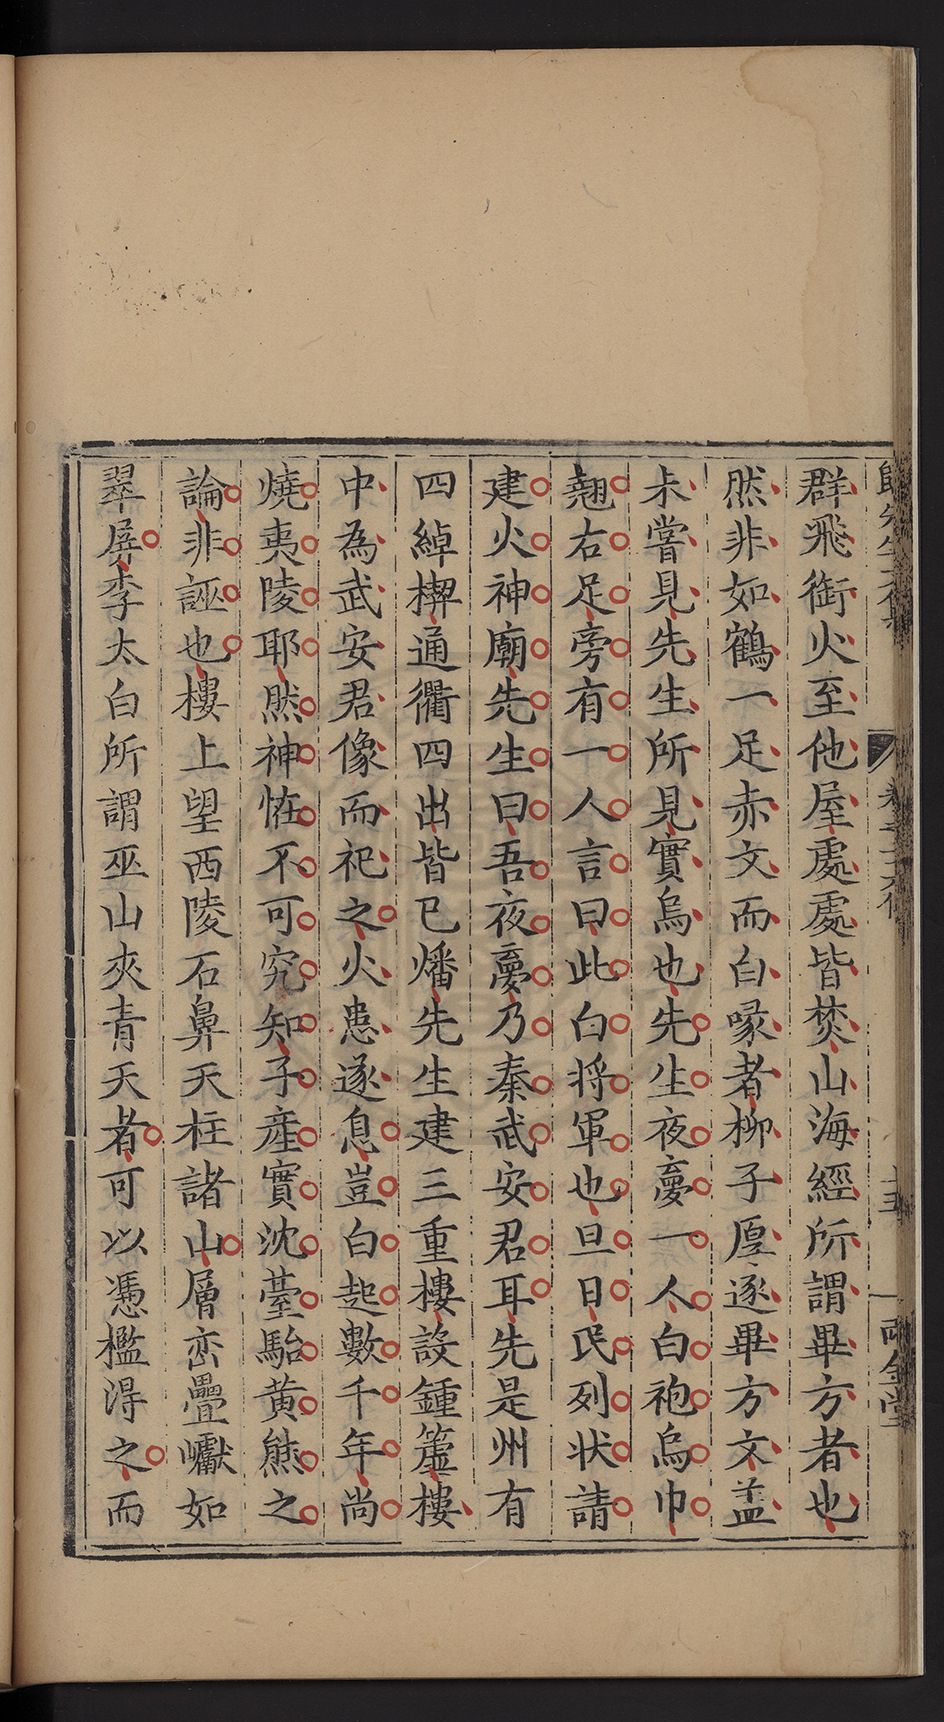 群飛銜火至他屋處處皆焚山海經所謂畢方者也
然非如鶴一足赤文而白喙者柳子厚逐畢方文盖
未嘗見先生所見實烏也先生夜夢一人白袍烏巾
翹右足旁有一人言曰此白將軍也旦日民列狀請
建火神廟先生曰吾夜夢乃秦武安君耳先是州有
四綽楔通衢四出皆已燔先生建三重樓設鍾簴樓
中為武安君像而祀之火患遂息豈白起數千年尚
燒夷陵耶然神恠不可究知子產實沈臺駘黄熊之
論非誣也樓上望西陵石鼻天柱諸山層巒疊巘如
翠屏李太白所謂巫山夾青天者可以憑檻得之而